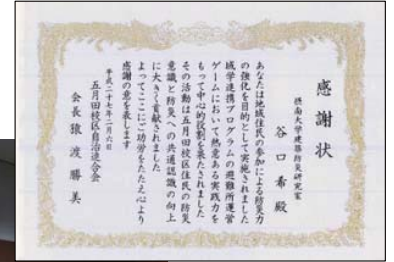 感謝状
摂南大学建築防災研究室
谷口希殿
あなたは地域住民の参加による防災力
の強化を目的として実施されました
域学連携プログラムの避難所運営
ゲームにおいて熱意ある実践力を
もって中心的役割を果たされました
その活動は五月田校区住民の防災
意識と防災への共通認識の向上
に大きく貢献されました
よってここにご功労をたたえ心より
感謝の意を表します
平成二十七年一月六日
五月田校区自治連合会
会長猿渡勝美